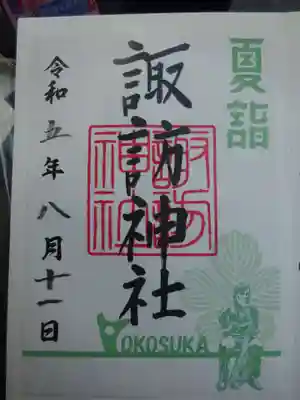 夏詣
諏訪神社
諏訪神社
令和五年八月十一日
YOKOSUKA